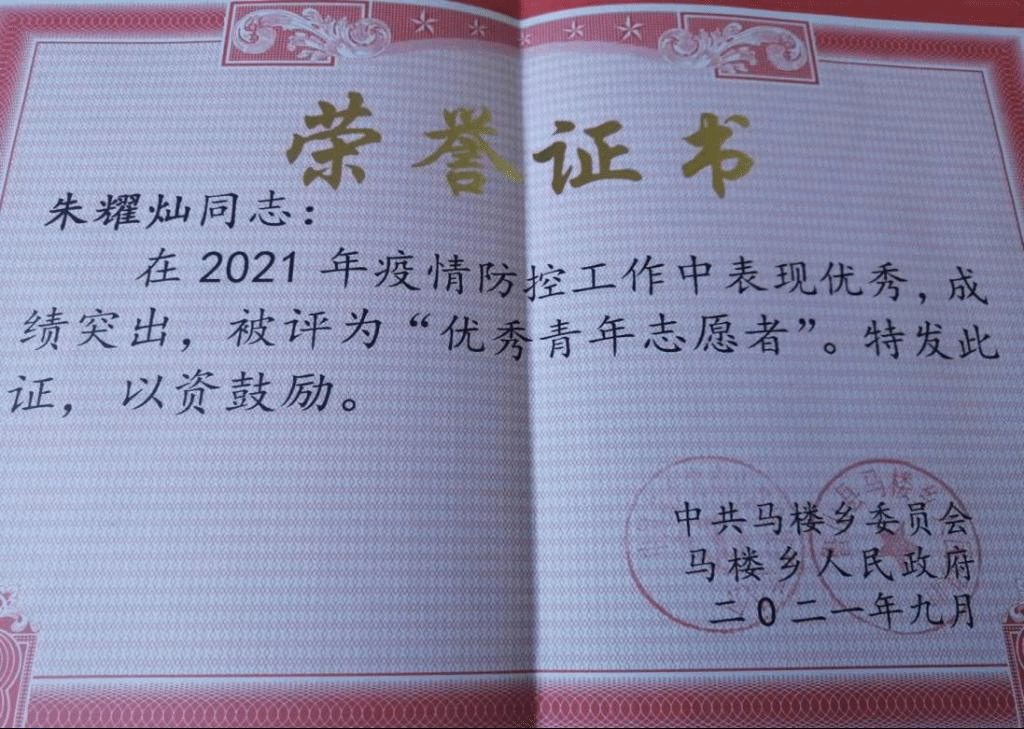 荣誉证书
朱耀灿同志：
在 2021 年疫情防控工作中表现优秀，成
绩突出，被评为“优秀青年志愿者”。特发此
证，以资鼓励。
中共马楼乡委员会
马楼乡人民政府
二0二一年九月
县马楼乡